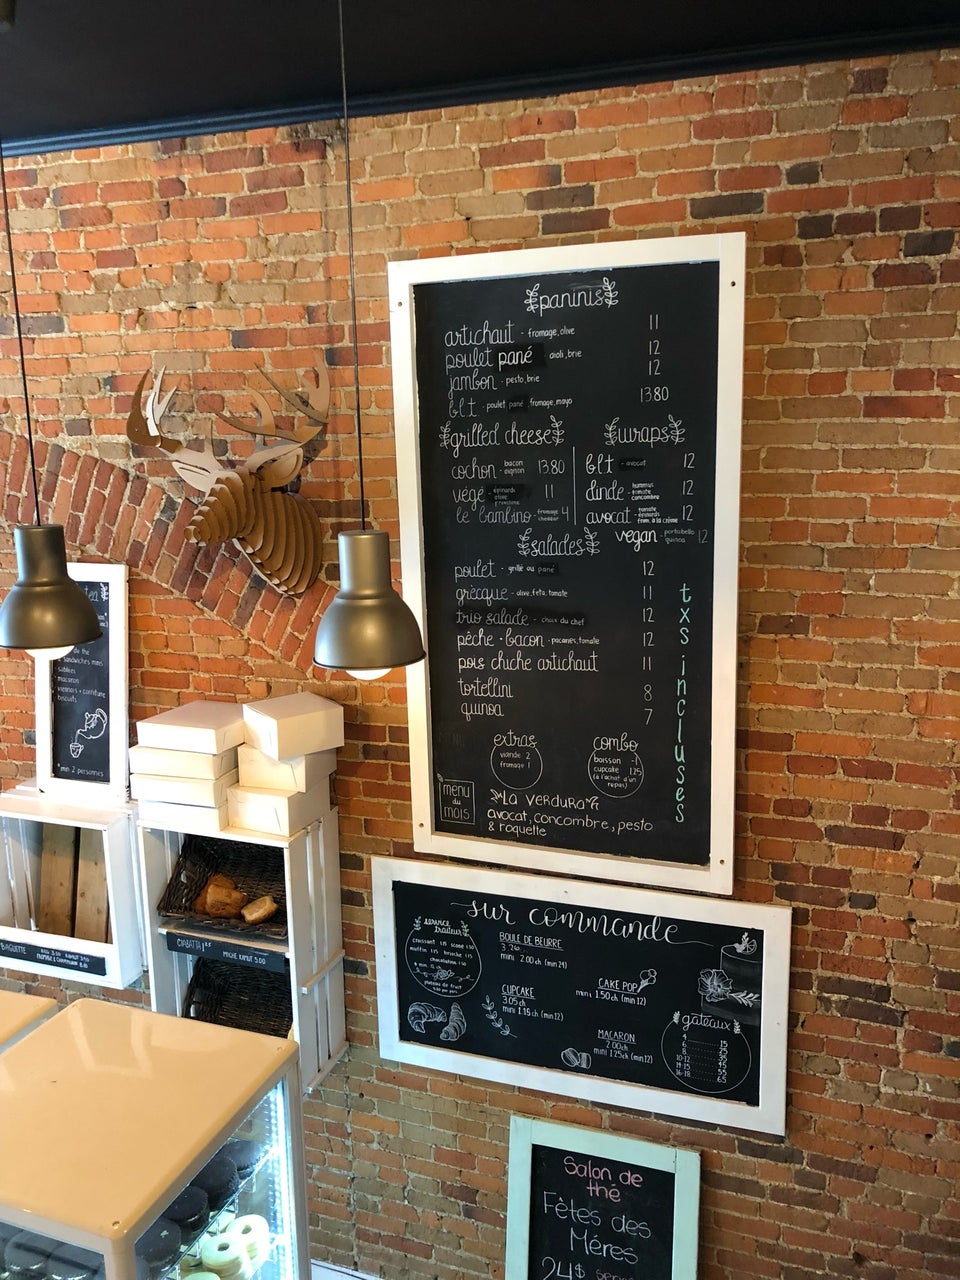 paninis
artichaut - fromage, olive 11
poulet pané aioli, brie 12
jambon - pesto, brie 12
b.l.t. - poulet pané, fromage, mayo 13.80
grilled cheese
cochon - bacon oignon 13.80
végé - épinards olive 11
le bambino - fromage cheddar 4
wraps
b.l.t - avocat 12
dinde - hummus tomate concombre 12
avocat - tomate épinards from. à la crème 12
vegan - portobello quinoa 12
salades
poulet - grillé ou pané 12
grecque - olive, feta, tomate 11
trio salade - choix du chef 12
pêche - bacon - pacanes, tomate 12
pois chiche artichaut 11
tortellini 8
quinoa 7
txs incluses
extras
viande 2
fromage 1
combo
boisson -1
cupcake 1.25
(à l'achat d'un
repas)
menu
du
mois
La Verdura
avocat, concombre, pesto
& roquette
sur commande
service
traiteur
croissant 1.15 scone 1.50
muffin 1.15 brioche 1.15
chocolatine 1.50
* min. 12
plateau de fruit
BOULE DE BEURRE
mini 2.00 ch (min 24)
CUPCAKE
3.05 ch
mini 1.15 ch (min 12)
CAKE POP
mini 1.50 ch (min 12)
MACARON
2.00 ch
mini 1.25 ch (min 12)
gâteaux
4 15
6 25
8 35
10-12 45
14-15 55
16-18 65
tea
sandwichs minis
sablées
macaron
viennois + confiture
biscuits
* min 2 personnes
BAGUETTE
CIABATTA
MICHE KAMUT 5.00
Salon de
thé
Fêtes des
Méres
24$